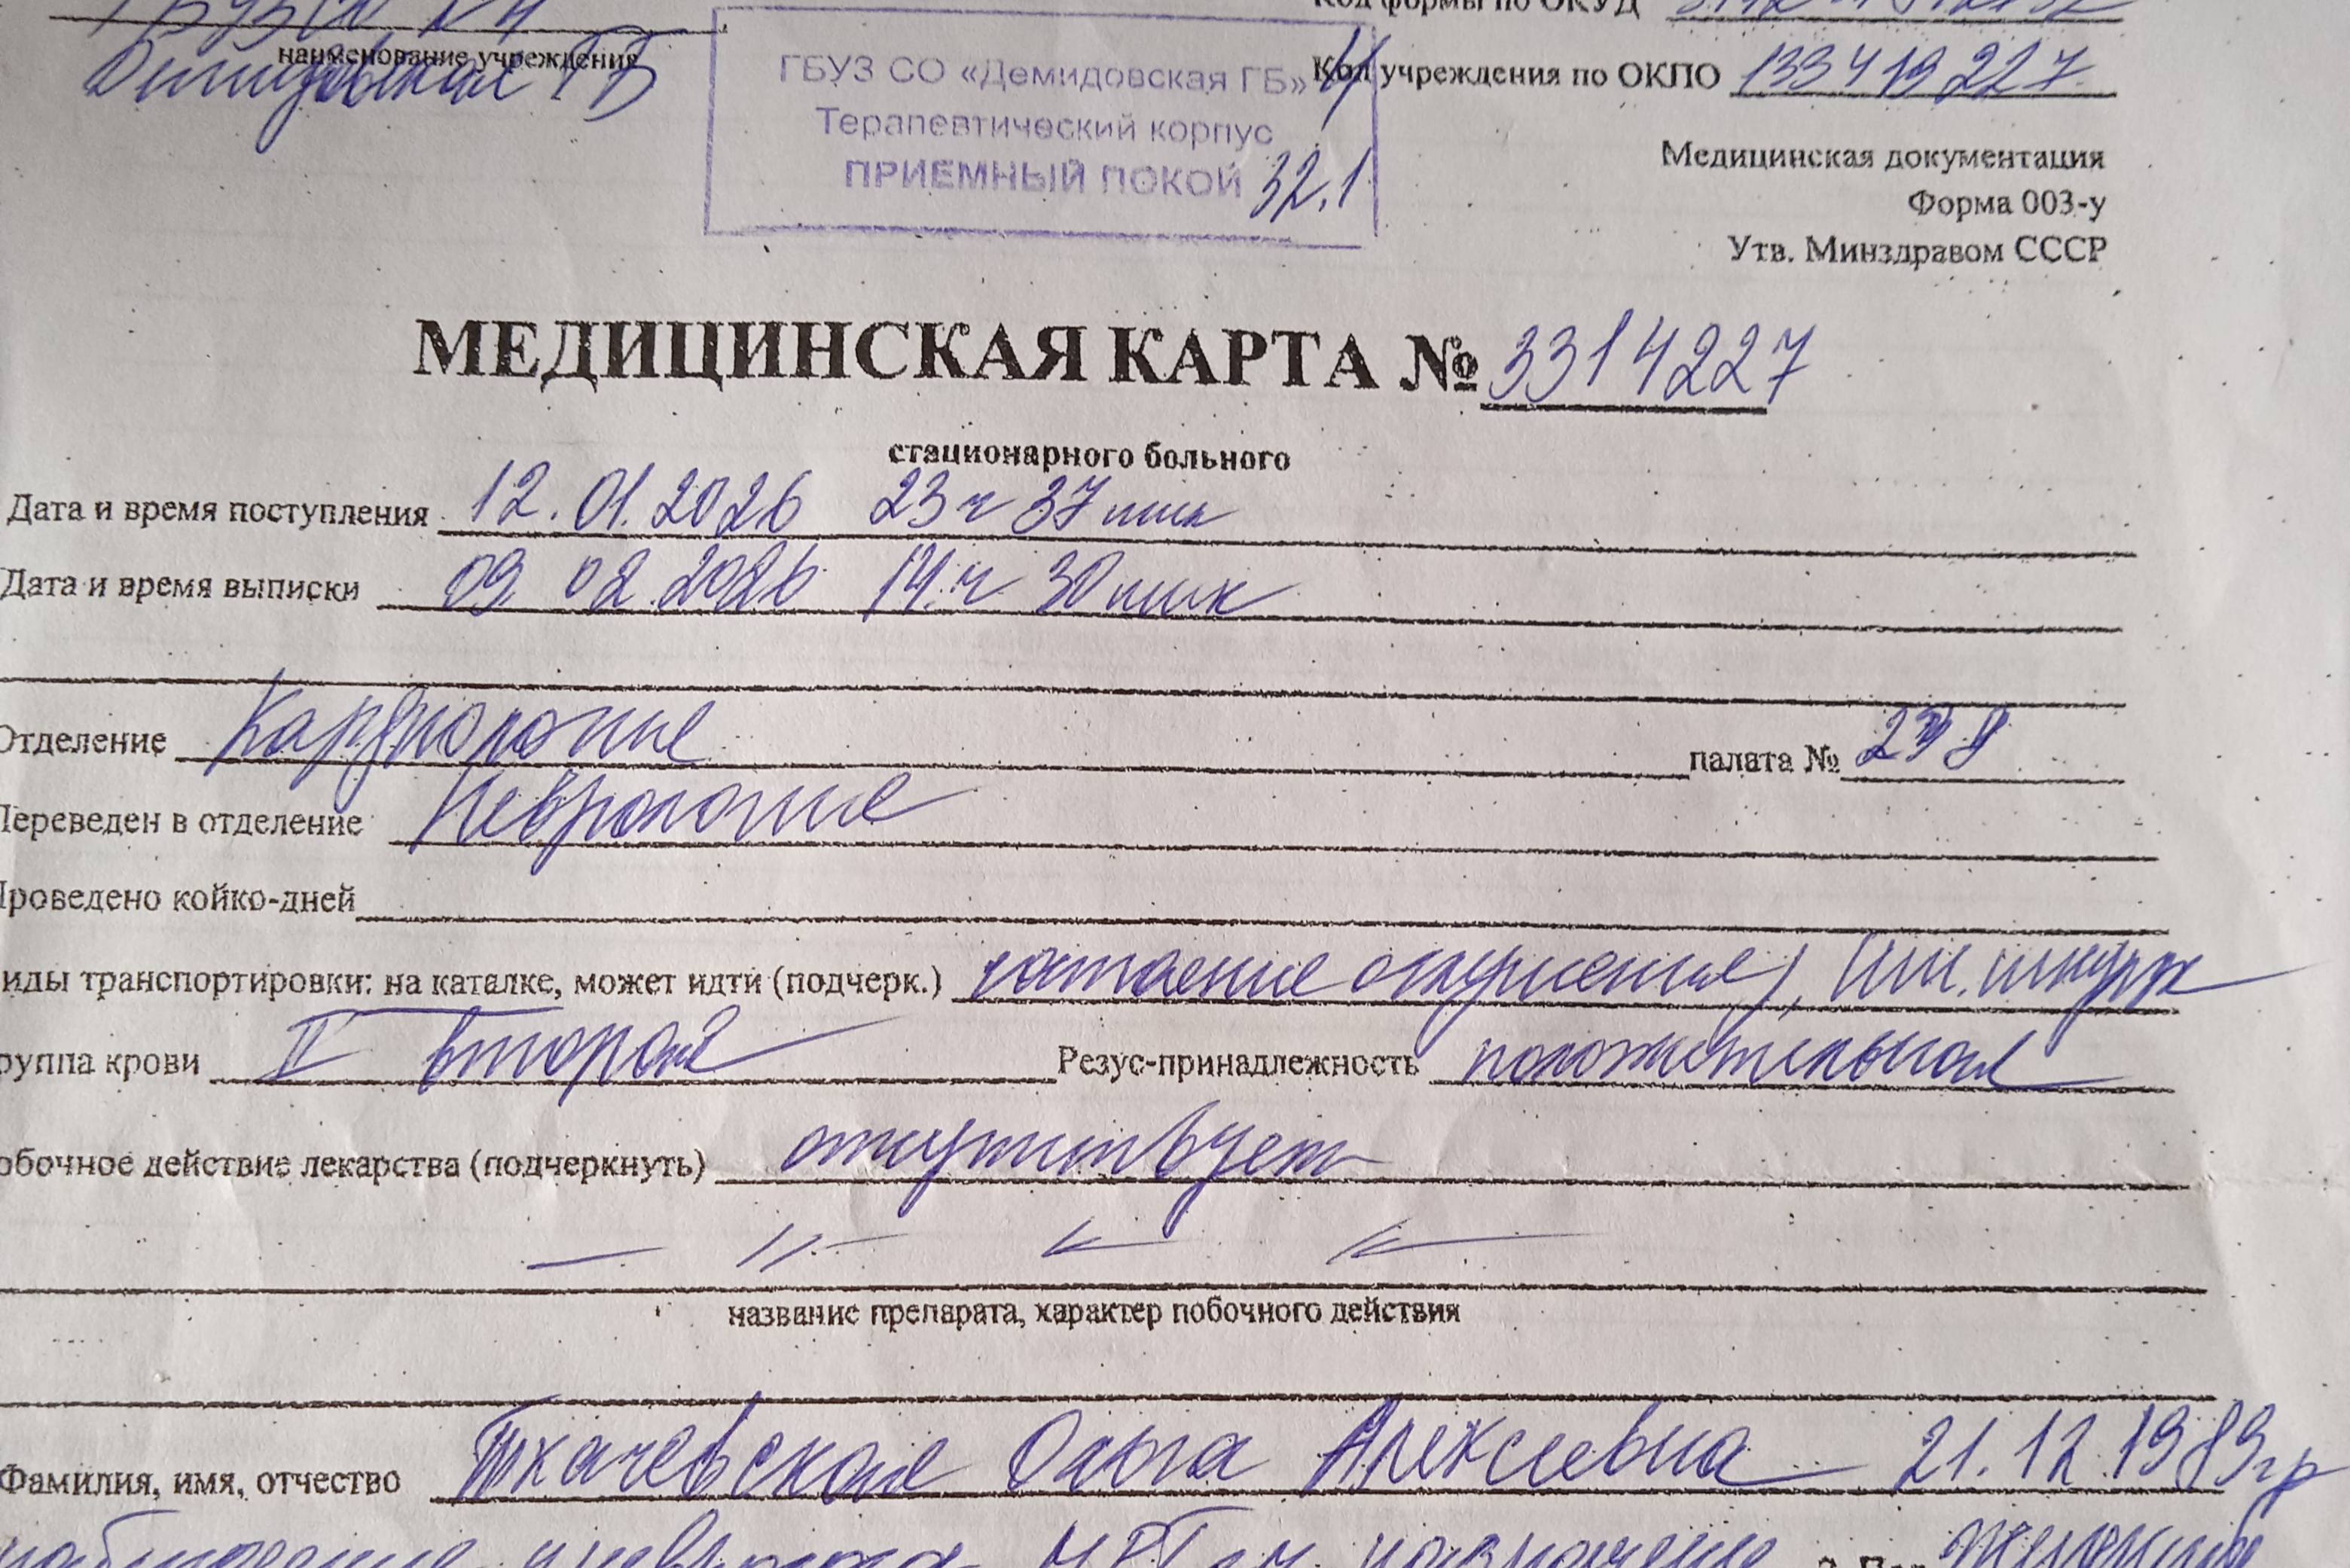 наименование учреждения
Демидовская ГБ
ГБУЗ СО «Демидовская ГБ»
Терапевтический корпус
ПРИЕМНЫЙ ПОКОЙ 32.1
Код формы по ОКУД
Код учреждения по ОКПО 133419227
Медицинская документация
Форма 003-у
Утв. Минздравом СССР
МЕДИЦИНСКАЯ КАРТА № 3314227
стационарного больного
Дата и время поступления 12.01.2026 23ч 37мин
Дата и время выписки 09.02.2026 14.ч 30мин
Отделение Кардиология палата №
Переведен в отделение Неврология
Проведено койко-дней
иды транспортировки: на каталке, может идти (подчерк.)
руппа крови II вторая Резус-принадлежность положительная
обочное действие лекарства (подчеркнуть) отсутствует
название препарата, характер побочного действия
Фамилия, имя, отчество Ткачевская Ольга Алексеевна 21.12.1989гр
наблюдение МРТ назначение